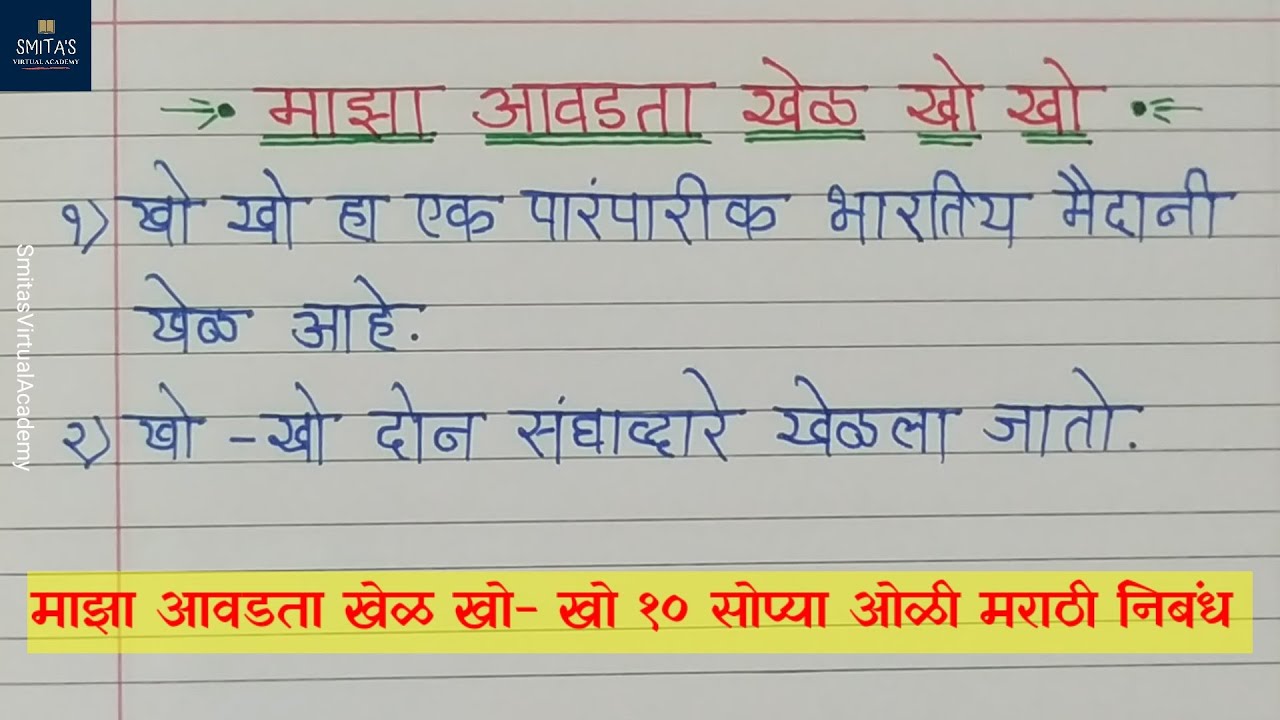 SMITA'S
VIRTUAL ACADEMY
माझा आवडता खेळ खो खो
१) खो खो हा एक पारंपारीक भारतिय मैदानी
खेळ आहे.
२) खो - खो दोन संघाव्दारे खेळला जातो.
SmitasVirtualAcademy
माझा आवडता खेळ खो- खो १० सोप्या ओळी मराठी निबंध